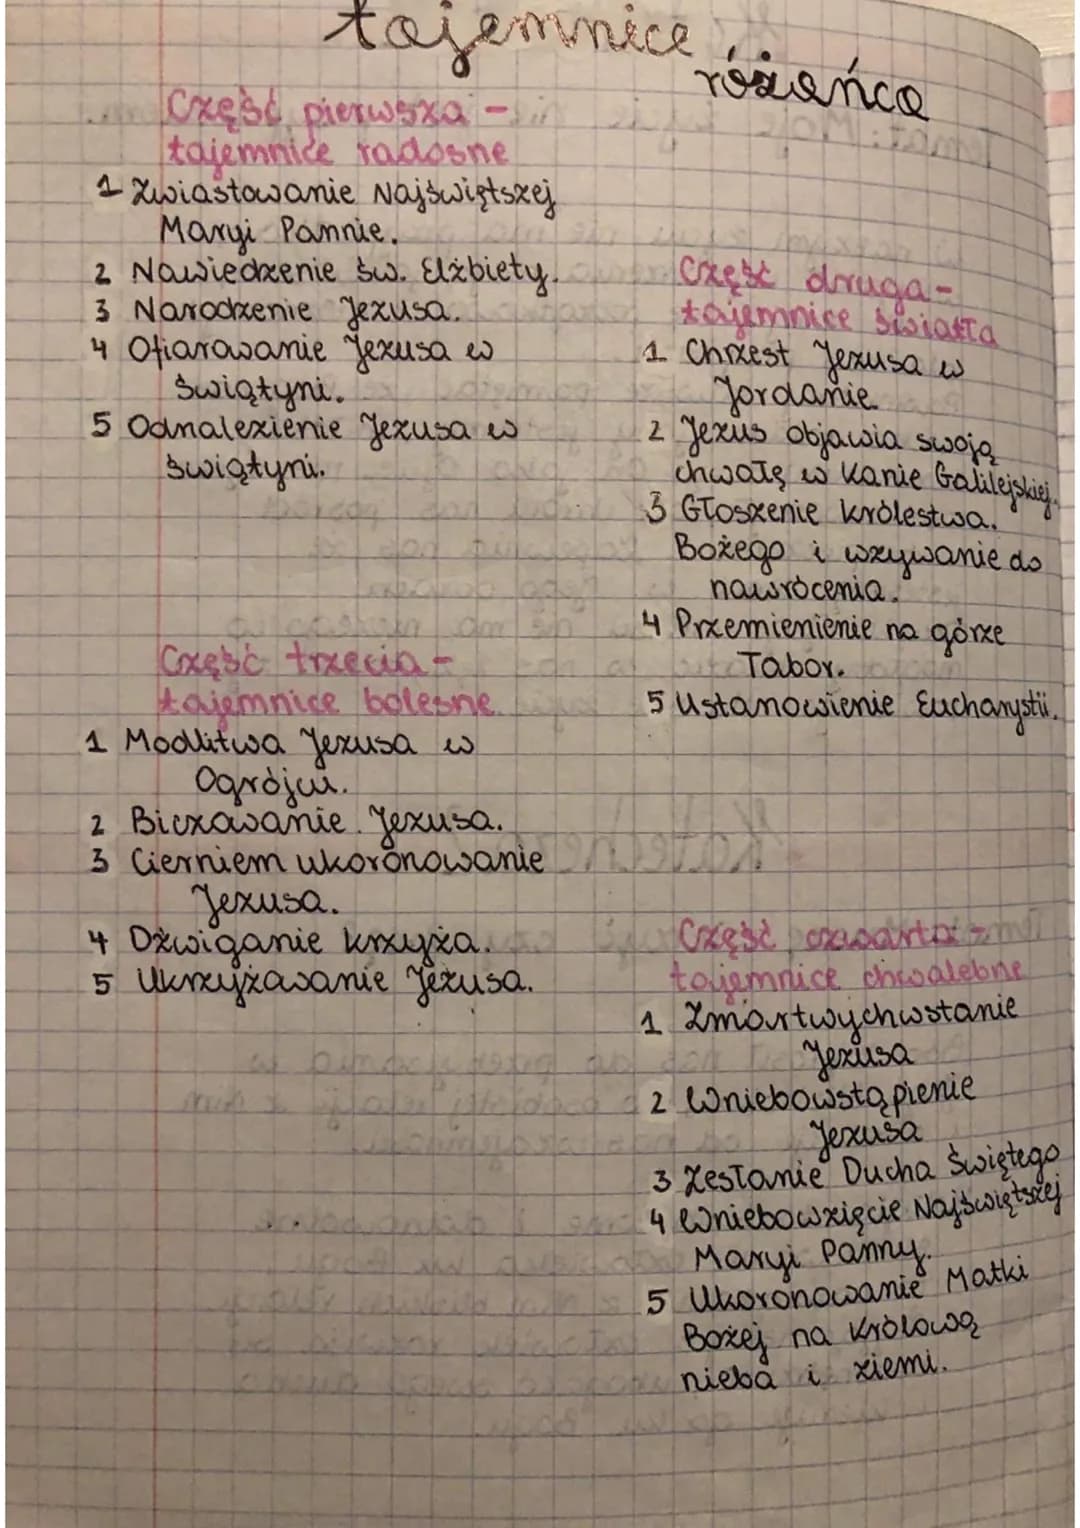 tajemnice
różańca
Część pierwsza -
tajemnice radosne
1 Zwiastowanie Najświętszej
Maryi Pannie.
2 Nawiedzenie św. Elżbiety.
3 Narodzenie Jezusa.
4 Ofiarowanie Jezusa w
świątyni.
5 Odnalezienie Jezusa w
świątyni.
Część druga -
tajemnice światła
1 Chrzest Jezusa w
Jordanie
2 Jezus objawia swoją
chwałę w Kanie Galilejskiej.
3 Głoszenie królestwa.
Bożego i wzywanie do
nawrócenia.
4 Przemienienie na górze
Tabor.
5 Ustanowienie Eucharystii.
Część trzecia -
tajemnice bolesne
1 Modlitwa Jezusa w
Ogrójcu.
2 Biczowanie Jezusa.
3 Cierniem ukoronowanie
Jezusa.
4 Dźwiganie krzyża.
5 Ukrzyżowanie Jezusa.
Część czwarta -
tajemnice chwalebne
1 Zmartwychwstanie
Jezusa
2 Wniebowstąpienie
Jezusa
3 Zesłanie Ducha Świętego
4 Wniebowzięcie Najświętszej
Maryi Panny.
5 Ukoronowanie Matki
Bożej na Królową
nieba i ziemi.